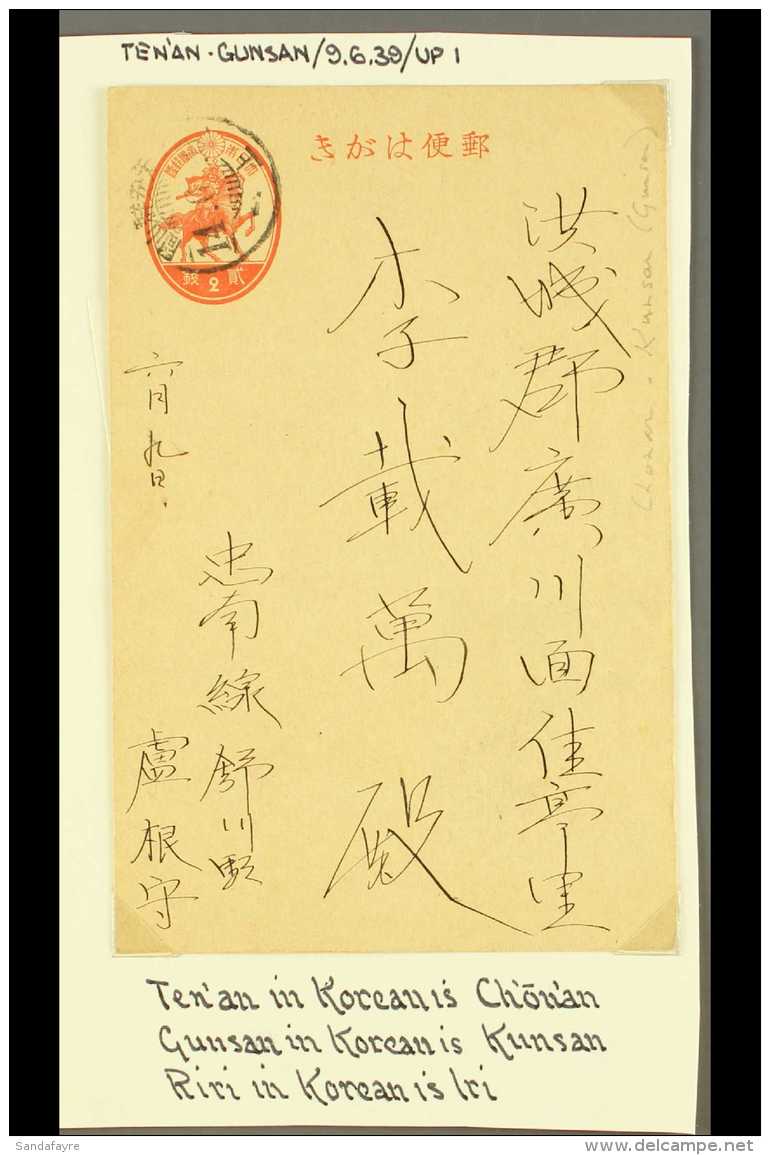 TEN'AN - GUNSAN/9.6.39/UP 1
郵便はがき
貳 2 錢
洪城郡廣川面佳亭里
李載萬殿
六月九日.
忠南線舒川駅
盧根守
Chonan - Kunsan (Gunsan)
Ten'an in Korean is Ch'ŏn'an
Gunsan in Korean is Kunsan
Riri in Korean is Iri
Sandafayre
www.delcampe.net